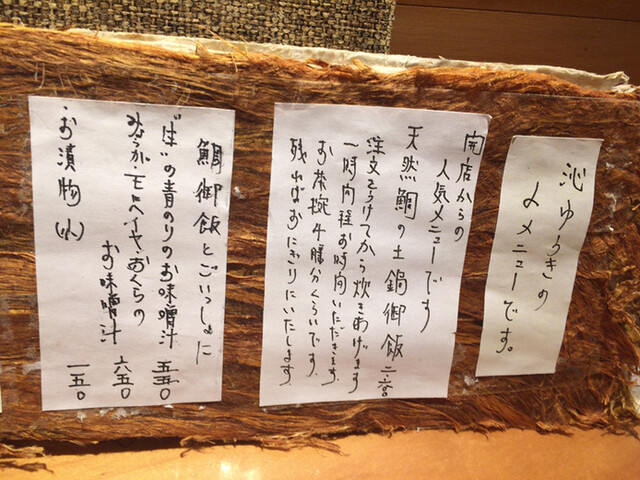 ゆうきの
〆メニューです。
開店からの
人気メニューです
天然鯛の土鍋御飯 二合
注文をうけてから炊きあげます
一時間程お時間いただきます
お茶碗4膳分くらいです
残ればおにぎりにいたします
鯛御飯とごいっしょに
の青のりのお味噌汁 五五〇
おくらの
お味噌汁 六五〇
お漬物(小) 一五〇